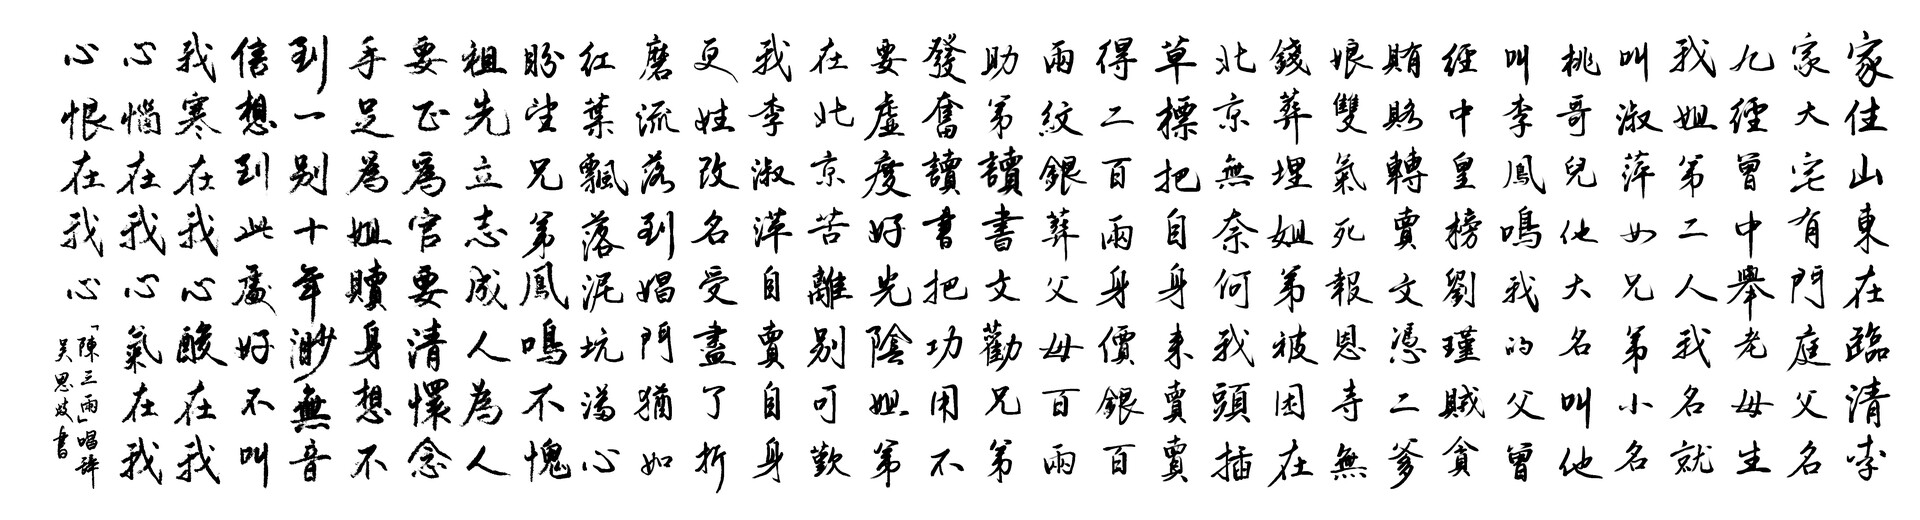 家住山東在臨清李
家大宅有門庭父名
九經曾中舉老母生
我姐第二人我名就
叫淑萍女兄第小名
桃哥兒他大名叫他
叫李鳳鳴我的父曾
經中皇榜劉瑾賊貪
賄賂轉賣文憑二爹
娘雙氣死報恩寺無
錢葬埋姐第被困在
北京無奈何我頭插
草標把自身来賣賣
得二百兩身價銀百
兩紋銀葬父母百兩
助第讀書文勸兄第
發奮讀書把功用不
要虛度好光陰姐第
在北京苦離別可歎
我李淑萍自賣自身
更姓改名受盡了折
磨流落到娼門猶如
紅葉飄落泥坑滿心
盼望兄第鳳鳴不愧
祖先立志成人為人
要正為官要清懷念
手足為姐贖身想不
到一别十年渺無音
信想到此處好不叫
我寒在我心酸在我
心惱在我心氣在我
心恨在我心
「陳三兩」唱辞
吴思 書